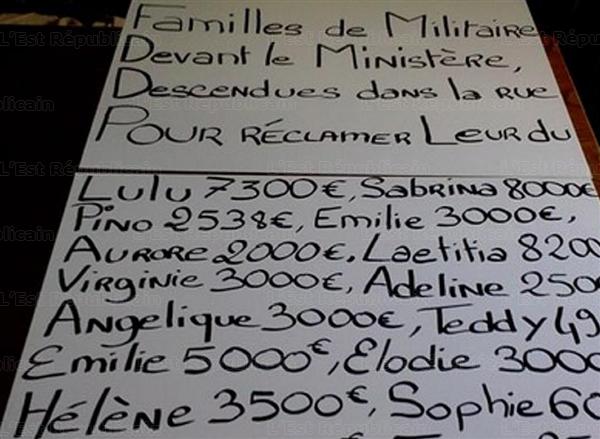 Familles de Militaire
Devant le Ministère,
Descendues dans la rue
Pour réclamer Leur du
Lulu 7300€, Sabrina 8000€
Pino 2538€, Emilie 3000€,
Aurore 2000€. Laetitia 8200
Virginie 3000€, Adeline 250
Angelique 3000€, Teddy 49
Emilie 5000€, Elodie 3000
Hélène 3500€, Sophie 60
L'Est Républicain